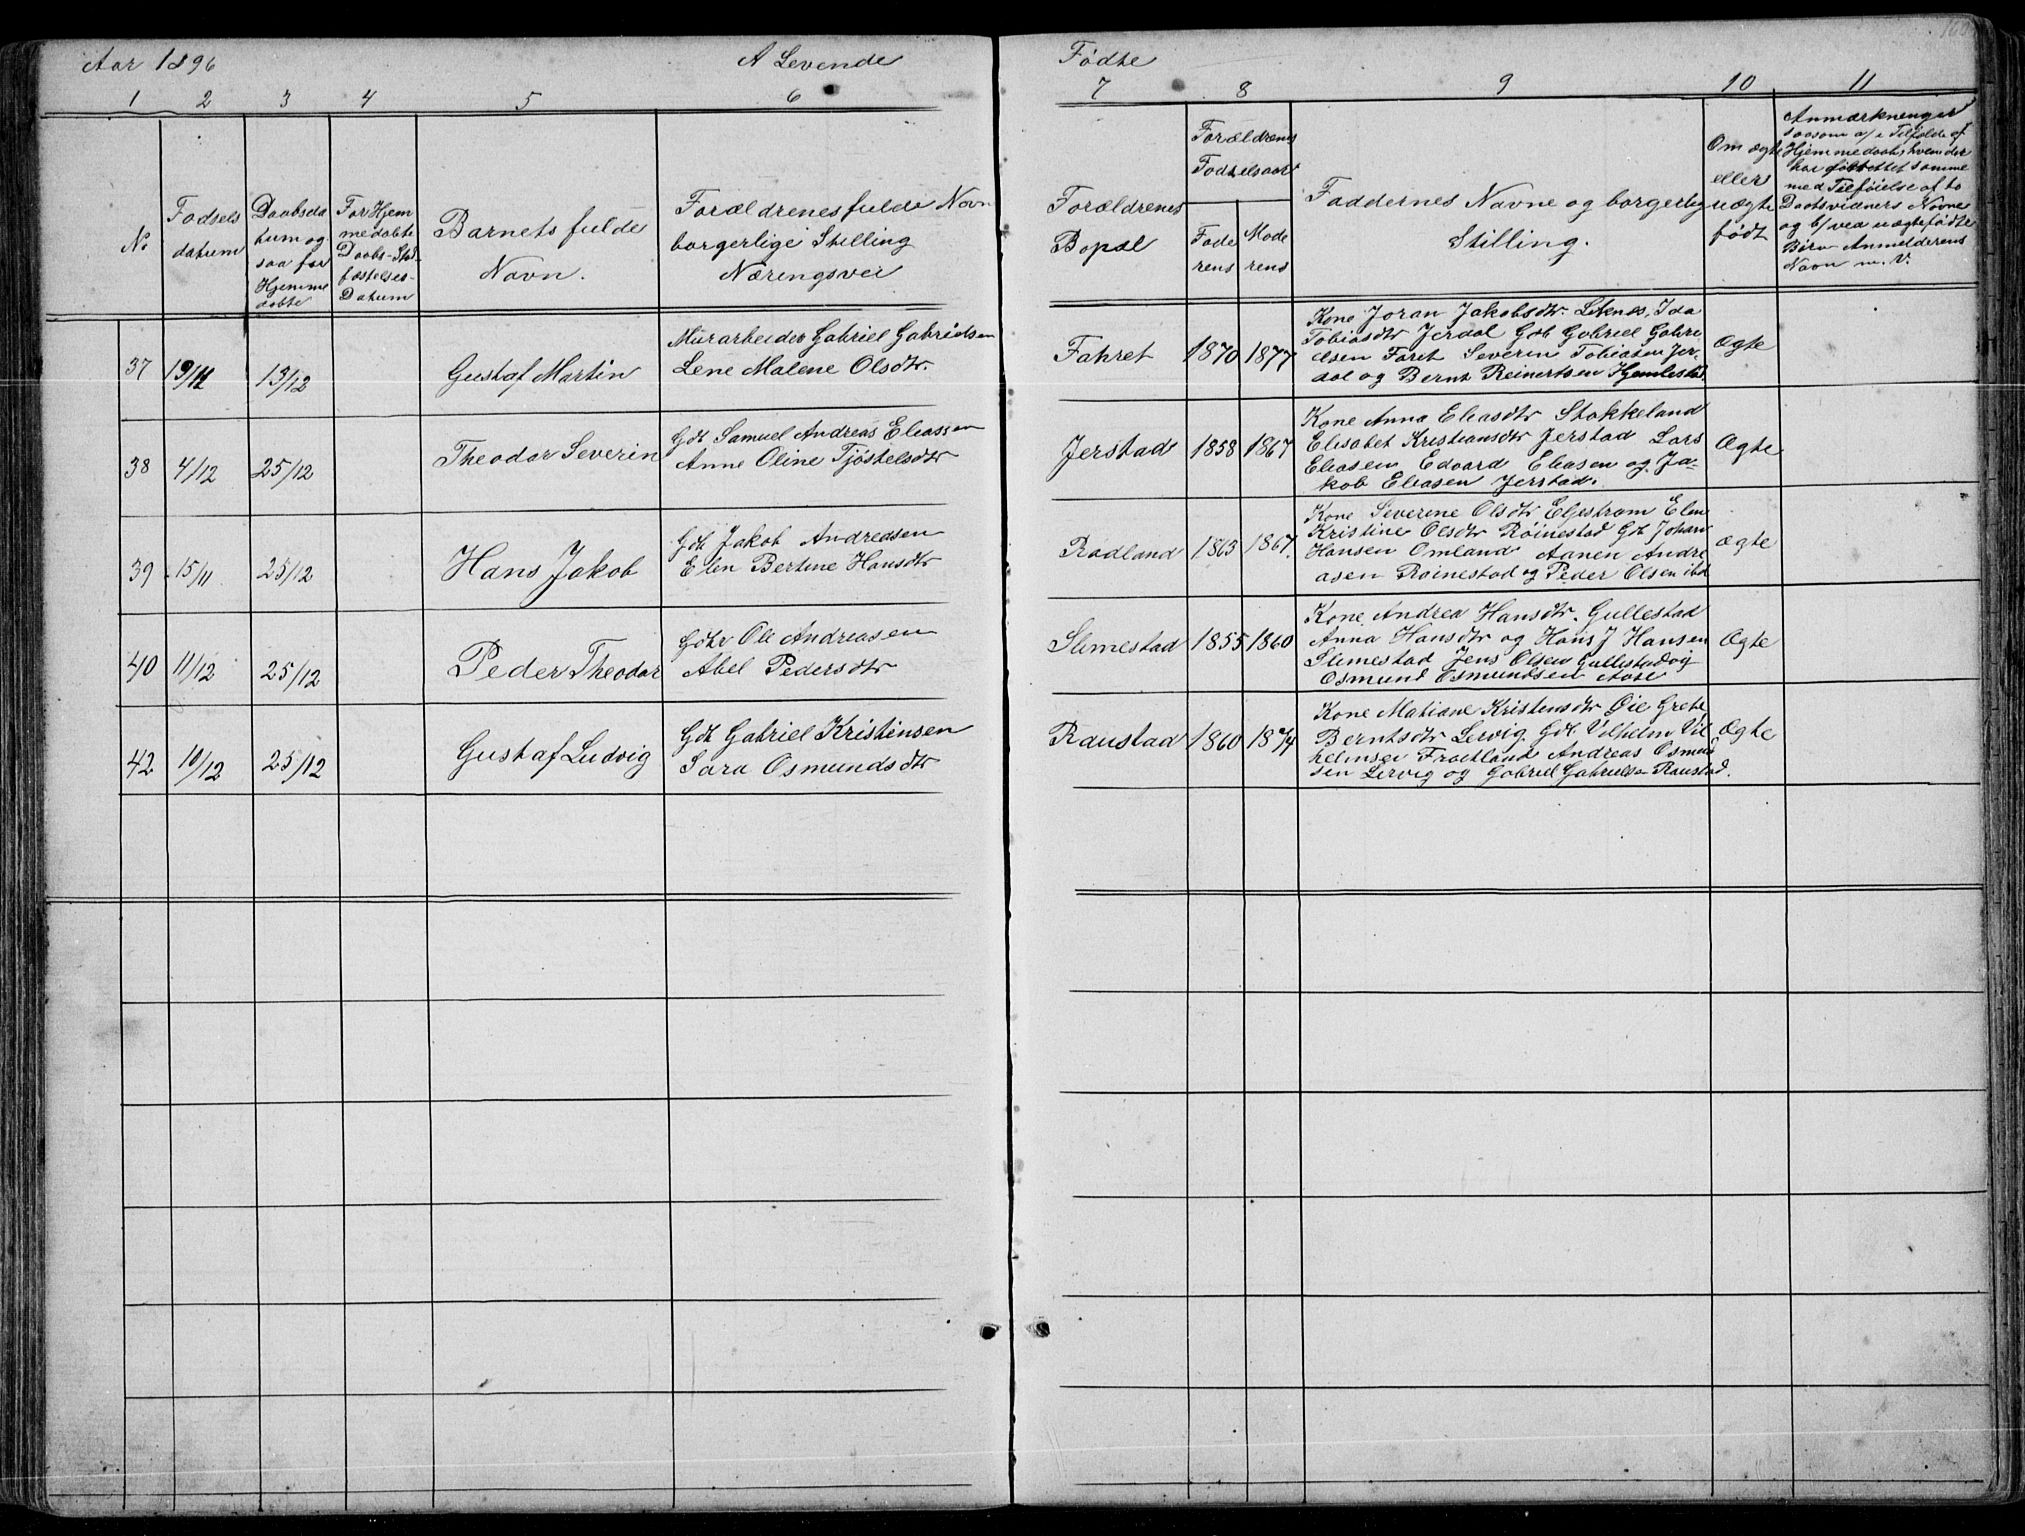 Aar 1896
A Levende
Fødte
160
1 2 3 4 5 6
7 8 9 10 11
No
Fødsels
datum
Daabsda
tum og
saa for
Hjemme
døbte
For Hjem
medøbte
Daabs-Stad
fæstelses-
Datum
Barnets fulde
Navn.
Forældrenes fulde Navn
borgerlige Stilling
Næringsvei
Forældrenes
Bopæl
Forældrenes
Fødselsaar
Fade
rens
Mode
rens
Faddernes Navne og borgerlig
Stilling.
Om ægte
eller
uægte
født
Anmærkninger
saasom a/ i Tilfælde af
Hjemmedaab, hvem der
har forrettet samme
med Tilføielse af to
Daabsvidners Navne
og b/ ved uægtefødte
Børn Anmelderens
Navn m. V.
37
19/11
13/12
Gustaf Martin
Murarbeider Gabriel Gabrielsen
Lene Malene Olsdtr.
Fahret
1870
1877
Kone Joran Jakobsdtr. Leknes, Ida
Tobiasdtr Jerdal Gdb Gabriel Gabri
elsen Faret Severin Tobiasen Jer-
dal og Bernt Reinertsen Hjemlestad
Ægte
38
4/12
25/12
Theodor Severin
Gdt Samuel Andreas Eliassen
Anne Oline Tjøstelsdtr
Jerstad
1858
1867
Kone Anna Eliasdtr Stokkeland
Elisabet Kristiansdtr Jerstad Lars
Eliasen Edvard Eliasen og Ja-
kob Eliasen Jerstad.
Ægte
39
15/11
25/12
Hans Jakob
Gdt Jakob Andreasen
Elen Bertine Hansdtr
Rødland
1863
1867.
Kone Severine Olsdtr Eljestrøm Elen
Kristine Olsdtr Røinestad Gdt Johan
Hansen Omland Aanen Andre
asen Røinestad og Peder Olsen ibd
ægte
40
11/12
25/12
Peder Theodor
Gdbr Ole Andreasen
Abel Pedersdtr
Slimestad
1855
1860
Kone Andrea Hansdtr. Gullestad
Anna Hansdtr og Hans J Hansen
Slimestad Jens Olsen Gullestad og
Osmund Osmundsen Aase
Ægte
42
10/12
25/12
Gustaf Ludvig
Gdt Gabriel Kristensen
Sara Osmundsdtr
Raustad
1860
1874
Kone Matiane Kristensdtr Øie Grete
Berntsdtr Lervig. Gdt. Vilhelm Vil
helmsen Frøitland Andreas Osmund
sen Lervig og Gabriel Gabrielsen Raustad.
Ægte